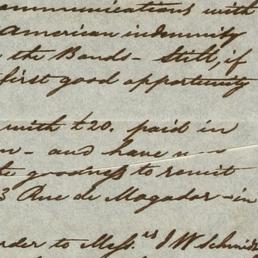 communications with
American indemnity
the Bonds - Still, if
first good opportunity
with £20. paid in
- and have
goodness to remit
3 Rue de Mogador - in
order to Mess.rs J W Schmidt